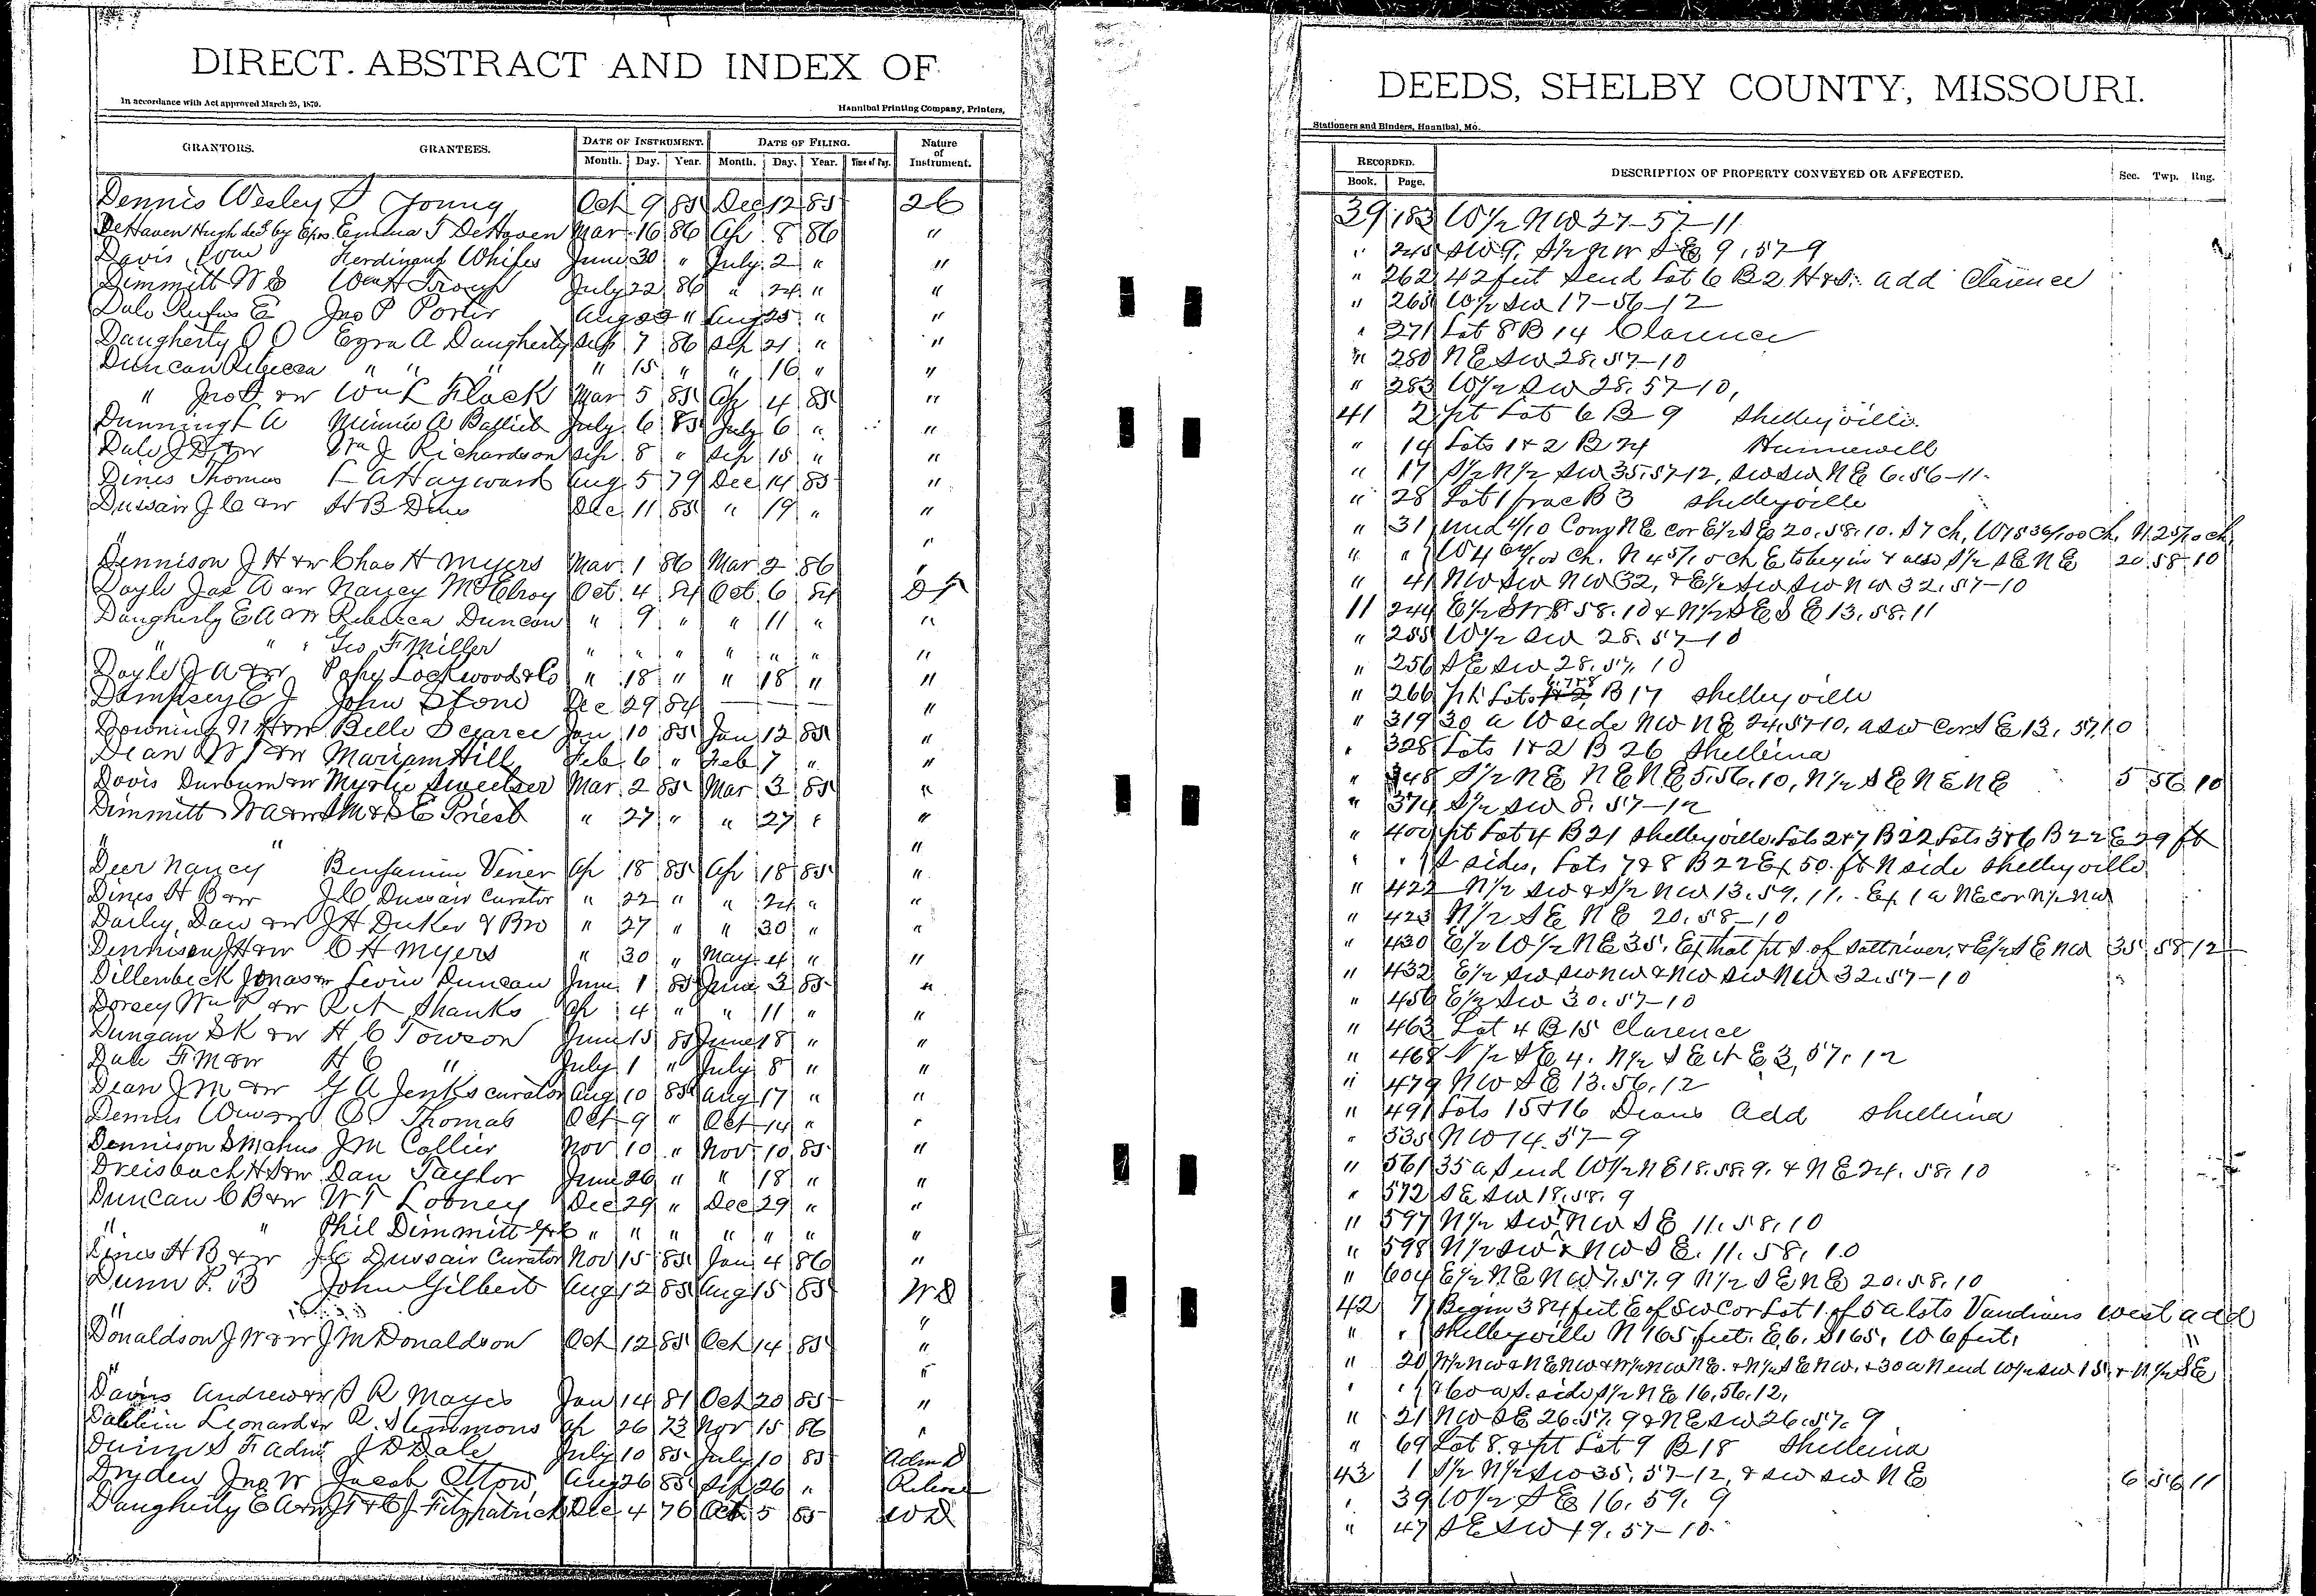 DIRECT. ABSTRACT AND INDEX OF
In accordance with Act approved March 25, 1879.
Hannibal Printing Company, Printers,
GRANTORS. GRANTEES. DATE OF INSTRUMENT. DATE OF FILING. Nature of Instrument.
Month. Day. Year. Month. Day. Year. Time of Day.
Dennis Wesley S Young Oct 9 85 Dec 12 85 26
DeHaven Hugh decd by Exrs. Emma T DeHaven Mar 16 86 Ap 8 86 "
Davis Ferdinand June 30 " July 2 " "
Dimmitt W E July 22 86 " 24 " "
Dale Rufus E Jno P Porter Aug " Aug 25 " "
Daugherty O O Ezra A Daugherty Sep 7 86 Sep 21 " "
Duncan Rebecca " " " " 15 " " 16 " "
" Wm L Flack Mar 5 85 Ap 4 85 "
Dunning L A Minnie A July 6 85 July 6 " "
Dale J D &w Wm J Richardson Sep 8 " Sep 15 " "
Dines Thomas L A Hayward Aug 5 79 Dec 14 85 "
Dussair J C &w H B Dines Dec 11 85 " 19 " "
" "
Dennison J H &w Chas H Myers Mar 1 86 Mar 2 86 "
Doyle Jas A &w Nancy McElroy Oct 4 84 Oct 6 84 DT
Daugherty E A &w Rebecca Duncan " 9 " " 11 " "
" " " Geo F Miller " " " " " " "
Doyle J A &w Lockwood & Co " 18 " " 18 " "
Dempsey E J John Stone Dec 29 84 — — — "
Downing N H &w Belle Jan 10 85 Jan 12 85 "
Dean W J &w Mariam Hill Feb 6 " Feb 7 " "
Davis Durburn &w Myrtie Sweetser Mar 2 85 Mar 3 85 "
Dimmitt W A &w S M & S E Priest " 27 " " 27 " "
" " "
Deer Nancy Benjamin Viner Ap 18 85 Ap 18 85 "
Dines H B &w J C Dussair Curator " 22 " " 24 " "
Darley, Daw &w J H Duker & Bro " 27 " " 30 " "
Dennison J H &w C H Myers " 30 " May 4 " "
Dillenbeck Jonas &w Levin Duncan June 1 85 June 3 85 "
Dorsey Wm P &w Shanks Ap 4 " " 11 " "
Dungan S K &w H C Towson June 15 85 June 18 " "
Dale F M &w H C " July 1 " July 8 " "
Dean J M &w Y A Jenks curator Aug 10 85 Aug 17 " "
Dennis &w Thomas Oct 9 " Oct 14 " "
Dennison S M J M Collier Nov 10 " Nov 10 85 "
Dreisbach H S &w Dan Taylor June 26 " " 18 " "
Duncan C B &w W T Looney Dec 29 " Dec 29 " "
" " Phil Dimmitt " " " " " " "
Dines H B & w J C Dussair Curator Nov 15 85 Jan 4 86 "
Dunn P. B John Gilbert Aug 12 85 Aug 15 85 WD
" "
Donaldson J W &w J M Donaldson Oct 12 85 Oct 14 85 "
" "
Davis Andrew &w S R Mayes Jan 14 81 Oct 20 85 "
Leonard &w R. Slemmons Ap 26 73 Nov 15 86 "
S F admr J D Dale July 10 85 July 10 85 Adm D
Dryden Jno W Jacob Ottow Aug 26 85 Sep 26 " Release
Daugherty E A &w Fitzpatrick Dec 4 76 Oct 5 85 WD
DEEDS, SHELBY COUNTY, MISSOURI.
Stationers and Binders, Hannibal, Mo.
RECORDED. DESCRIPTION OF PROPERTY CONVEYED OR AFFECTED. Sec. Twp. Rng.
Book. Page.
39 183 W½ NW 27-57-11
" 245 SW 9, S½ NW SE 9, 57-9
" 262 42 feet Send Lot 6 B 2 H & S. add Clarence
" 265 W½ SW 17-56-12
" 271 Lot 8 B 14 Clarence
" 280 NE SW 28, 57-10
" 283 W½ SW 28, 57-10,
41 2 pt Lot 6 B 9 Shelbyville.
" 14 Lots 1 & 2 B 24 Hunnewell
" 17 S½ N½ SW 35.57-12, SW SW NE 6.56-11.
" 28 Lot 1 frac B 3 Shelbyville
" 31 und 4/10 Comg NE cor E½ SE 20.58.10. S 7 ch, W 18 36/100 Ch, N 25/10 ch
" " W 4 ch. N 4 5/10 ch E to begin & also S½ SE NE 20 58 10
" 41 NW SW NW 32, & E½ SW SW NW 32.57-10
11 244 58.10 & N½ SE SE 13.58.11
" 255 W½ SW 28.57-10
" 256 SE SW 28.57.10
" 266 pt Lots 6.7 & 8 B 17 Shelbyville
" 319 30 a W side NW NE 24.57.10, a SW cor SE 13.57.10
" 328 Lots 1 & 2 B 26 Shelbina
" 348 S½ NE NE NE 5.56.10, N½ SE NE NE 5 56 10
" 374 S½ SW 8.57-12
" 400 pt Lot 4 B 21 Shelbyville, Lots 2 & 7 B 22 Lots 3 & 6 B 22 E 29 ft
" " S sides, Lots 7 & 8 B 22 Ex 50 ft N side Shelbyville
" 422 N½ SW & S½ NW 13.59.11. Ex 1 a NE cor N½ NW
" 423 N½ SE NE 20.58-10
" 430 E½ W½ NE 35, Ex that pt S of Salt river, & E½ SE NW 35 58 12
" 432 E½ SW SW NW & NW SW NW 32.57-10
" 456 E½ SW 30.57-10
" 463 Lot 4 B 15 Clarence
" 468 N½ SE 4. N½ SE 3, 57.12
" 479 NW SE 13.56.12
" 491 Lots 15 & 16 Deans Add Shelbina
" 535 NW 14.57-9
" 561 35 a S end W½ NE 18.58.9. & NE 24.58.10
" 572 SE SW 18.58.9
" 597 N½ SW, NW SE 11.58.10
" 598 N½ SW & NW SE. 11.58.10
" 604 E½ NE NW 7.57.9 N½ SE NE 20.58.10
42 7 Begin 384 feet E of SW Cor Lot 1. of 5 a lots Vandivers West add
" " Shelbyville N 165 feet. E 6. S 165, W 6 feet, "
" 20 N½ NW & NE NW & N½ NW NE. & N½ SE NW, & 30 a N end W½ SW 15, & N½ SE
" " & 60 a S. side S½ NE 16.56.12.
" 21 NW SE 26.57.9 & NE SW 26.57.9
" 69 Lot 8. & pt Lot 9 B 18 Shelbina
43 1 S½ N½ SW 35, 57-12, & SW SW NE 6 56 11
" 39 W½ SE 16.59.9
" 47 SE SW 19.57-10.